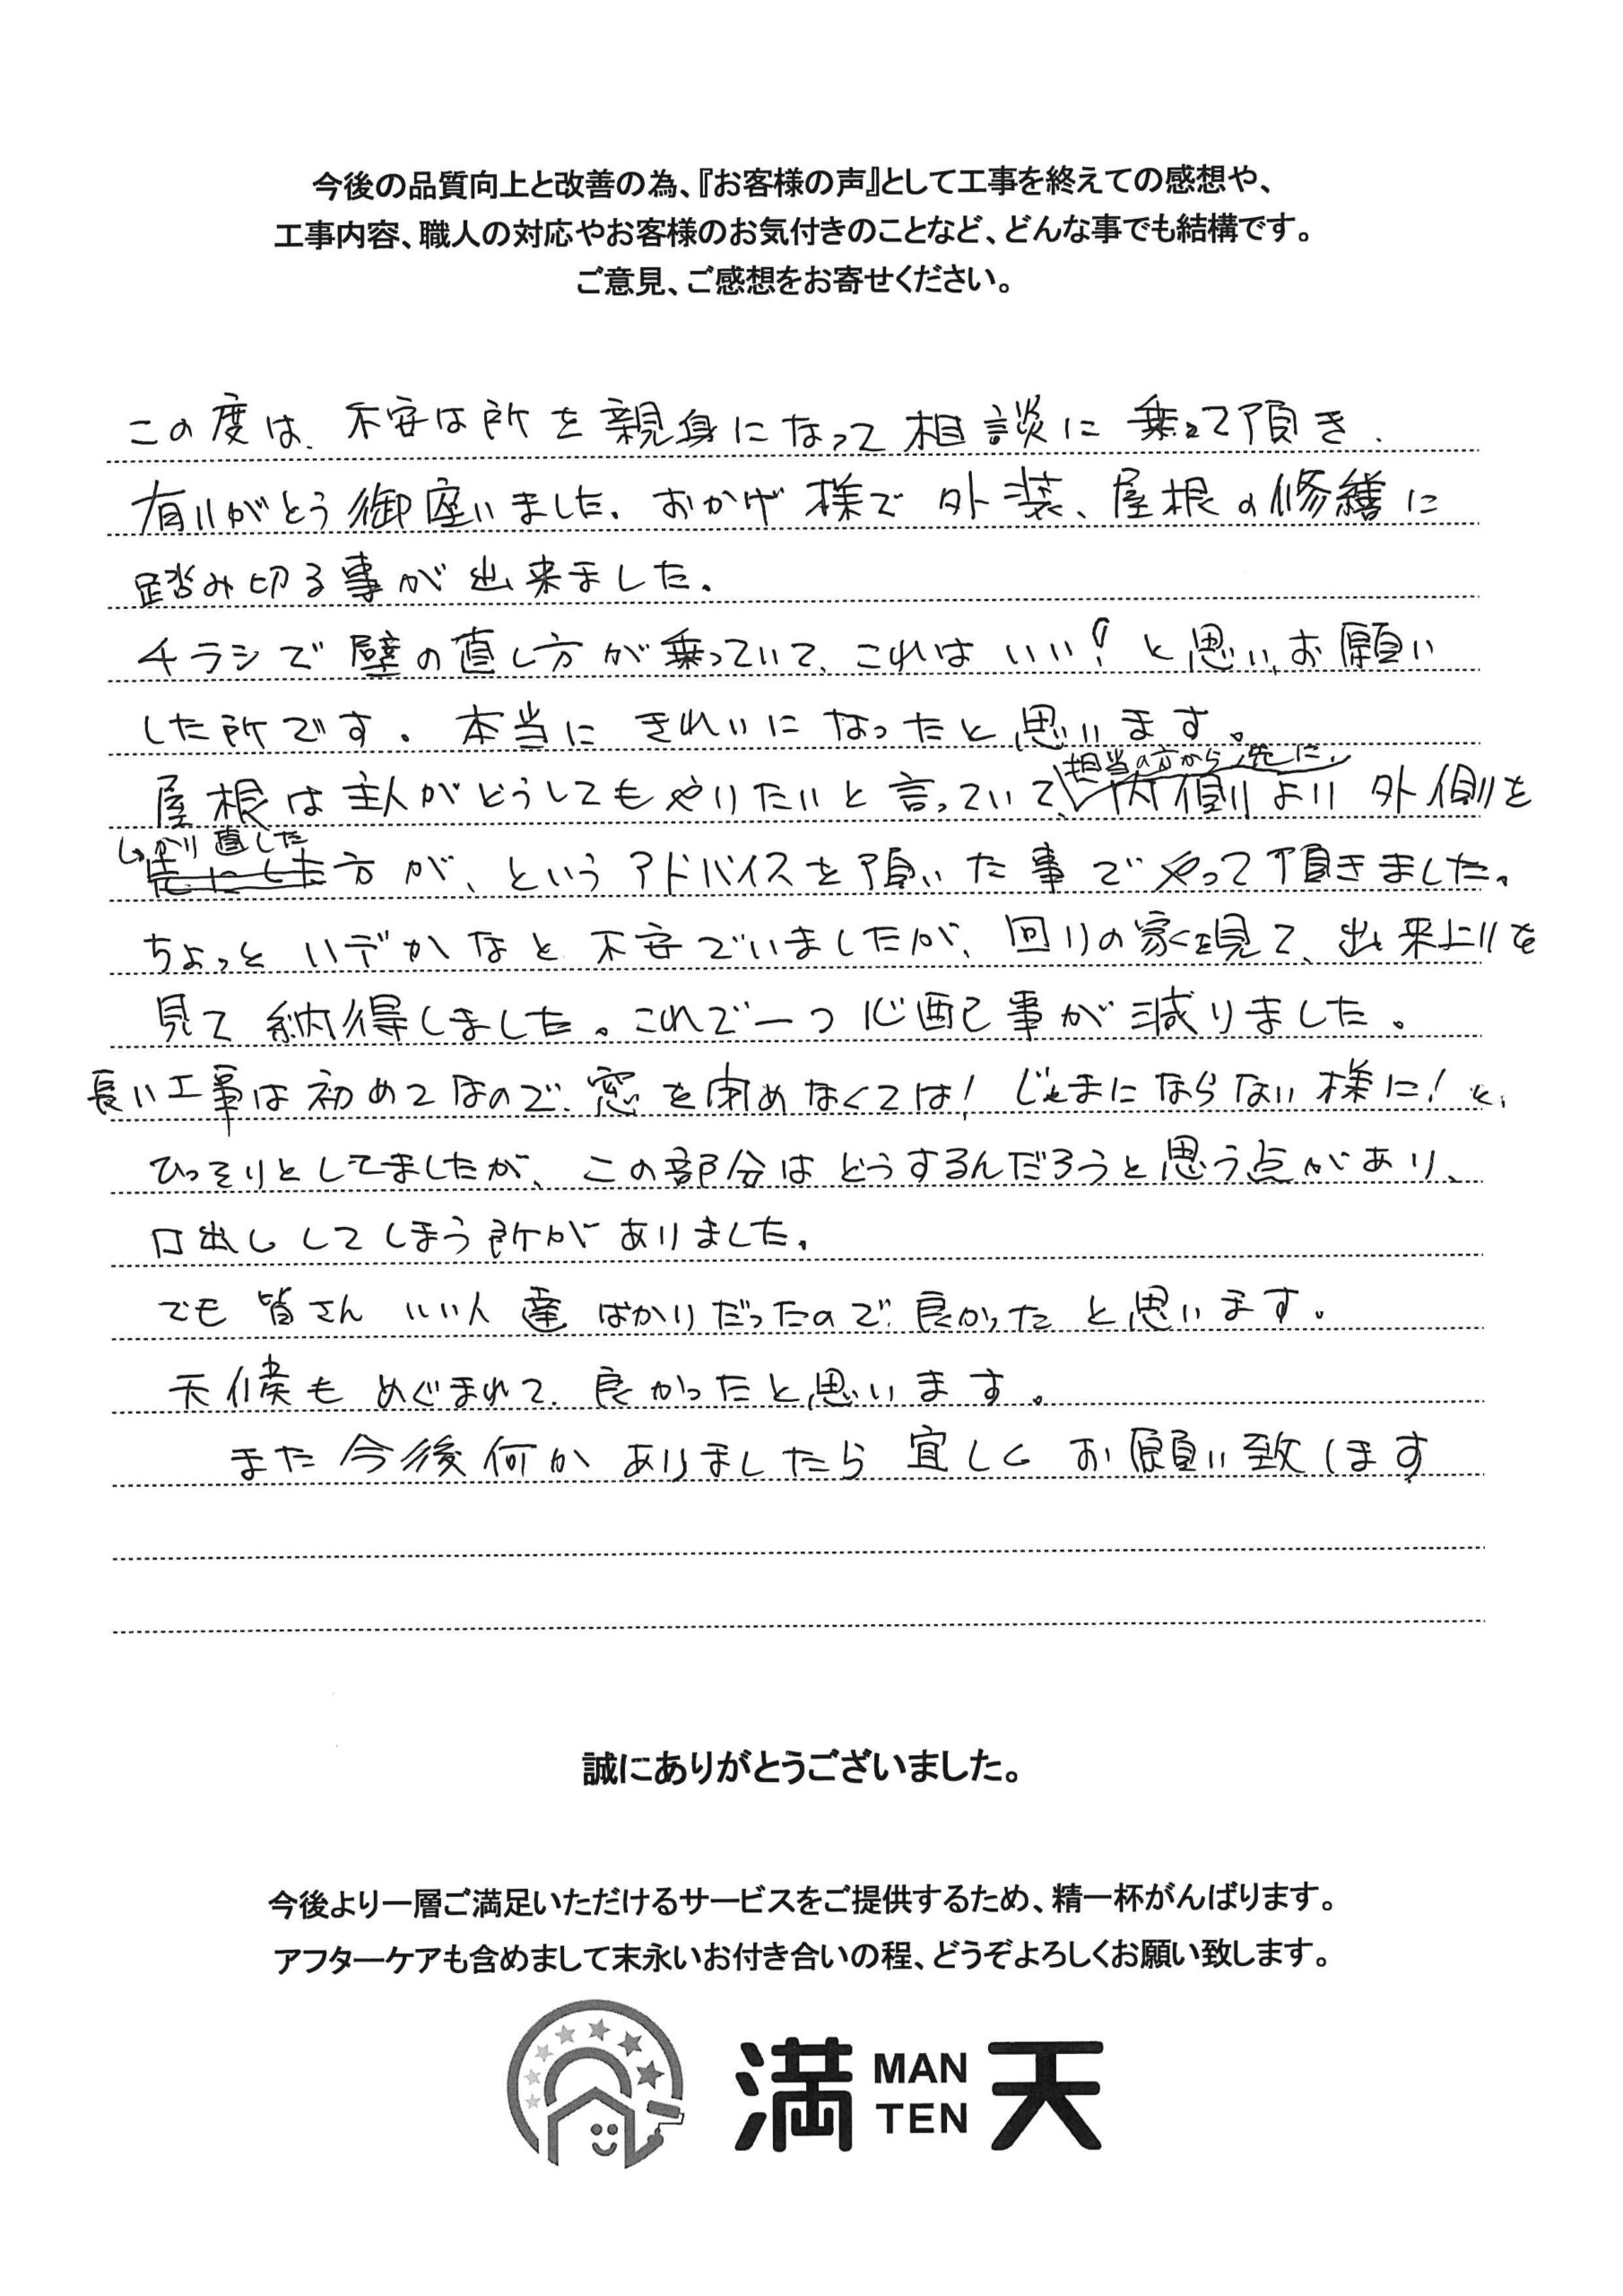 今後の品質向上と改善の為、『お客様の声』として工事を終えての感想や、
工事内容、職人の対応やお客様のお気付きのことなど、どんな事でも結構です。
ご意見、ご感想をお寄せください。
この度は、不安な所を親身になって相談に乗って頂き、
有りがとう御座いました。おかげ様で外装、屋根の修繕に
踏み切る事が出来ました。
チラシで壁の直し方が乗っていて、これはいい!と思い、お願い
した所です。本当にきれいになったと思います。
担当の方から先に、
屋根は主人がどうしてもやりたいと言っていて、内側より外側を
しっかり直した
先にした方が、というアドバイスを頂いた事でやって頂きました。
ちょっとハデかなと不安でいましたが、回りの家を見て、出来上りを
見て納得しました。これで一つ心配事が減りました。
長い工事は初めてなので、窓を閉めなくては!じゃまにならない様に!と、
ひっそりとしてましたが、この部分はどうするんだろうと思う点があり、
口出ししてしまう所がありました。
でも皆さんいい人達ばかりだったので、良かったと思います。
天候もめぐまれて、良かったと思います。
また今後何かありましたら宜しくお願い致します
誠にありがとうございました。
今後より一層ご満足いただけるサービスをご提供するため、精一杯がんばります。
アフターケアも含めまして末永いお付き合いの程、どうぞよろしくお願い致します。
満 MAN TEN 天